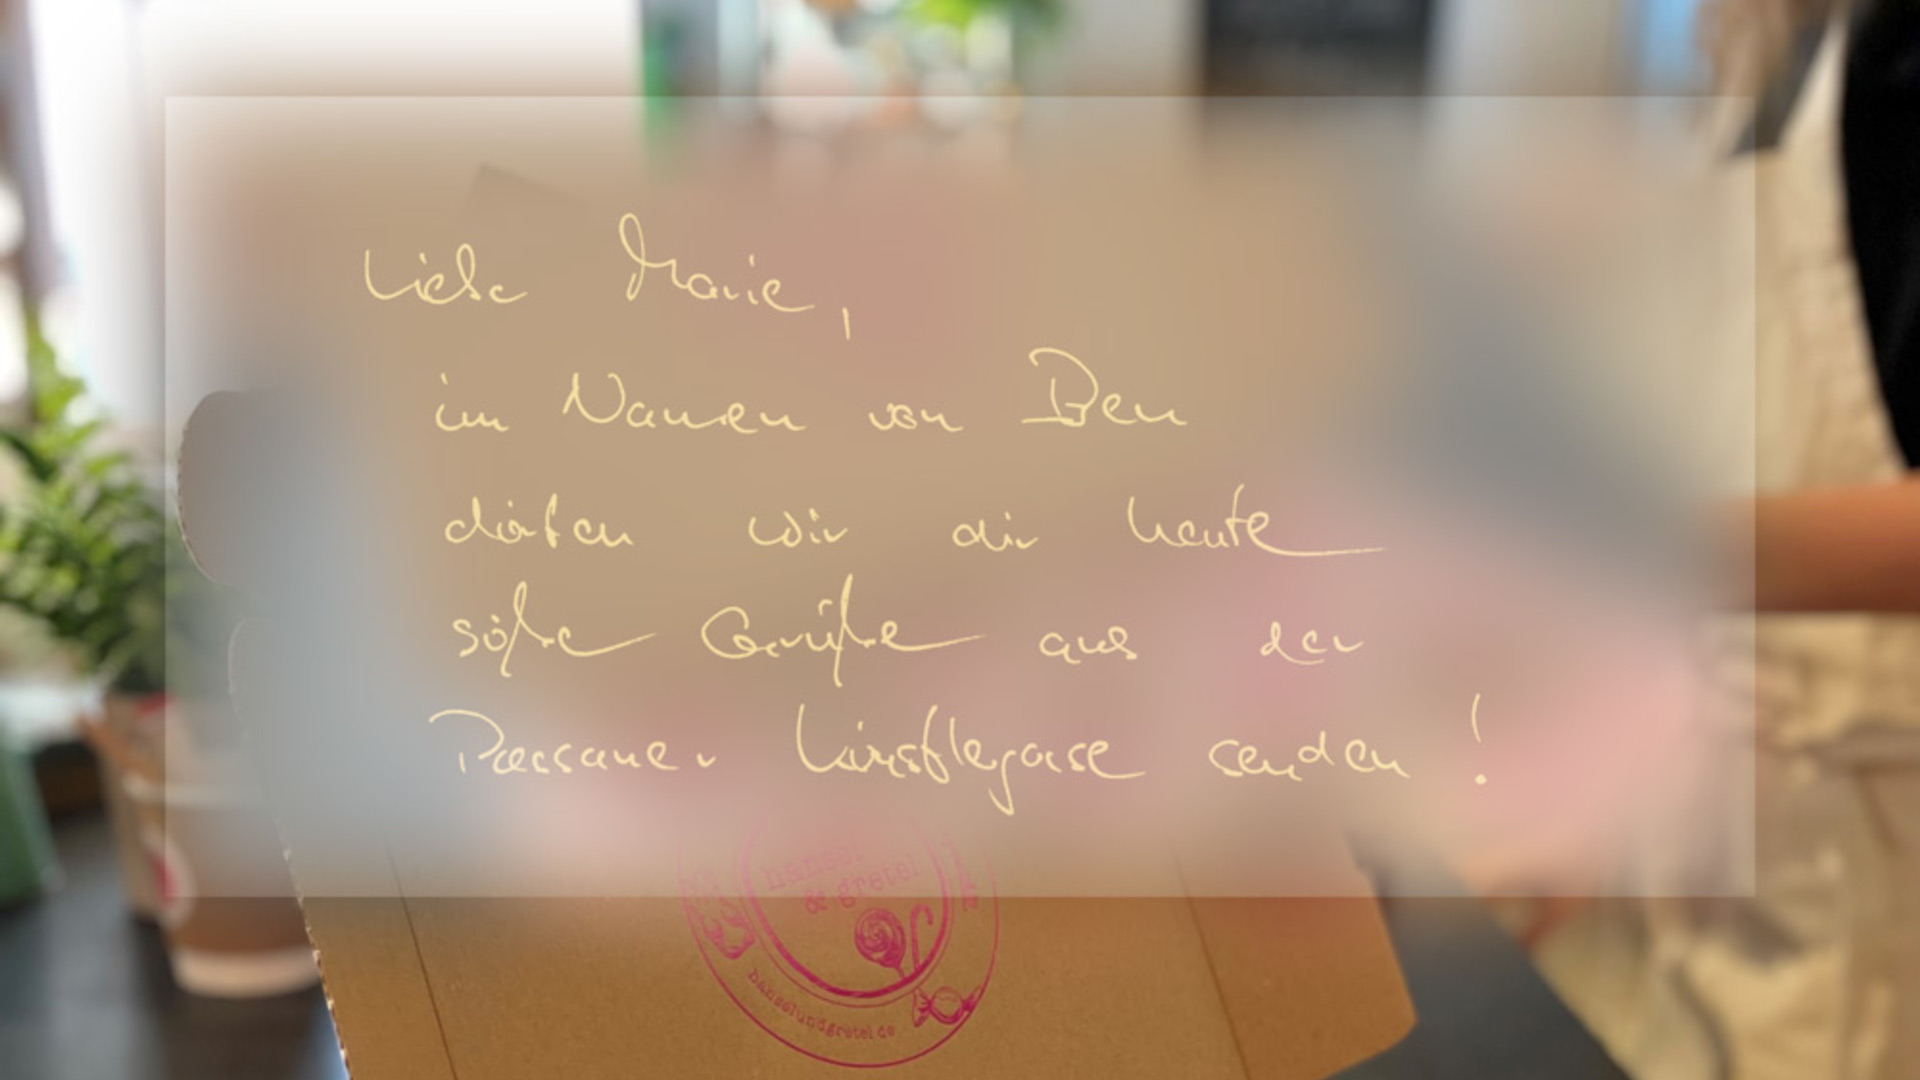 Liebe Marie,
im Namen von Ben
dürfen wir dir heute
süße Grüße aus der
Passauer Künstlergasse senden!
hänsel
& gretel
hanselundgretel.de